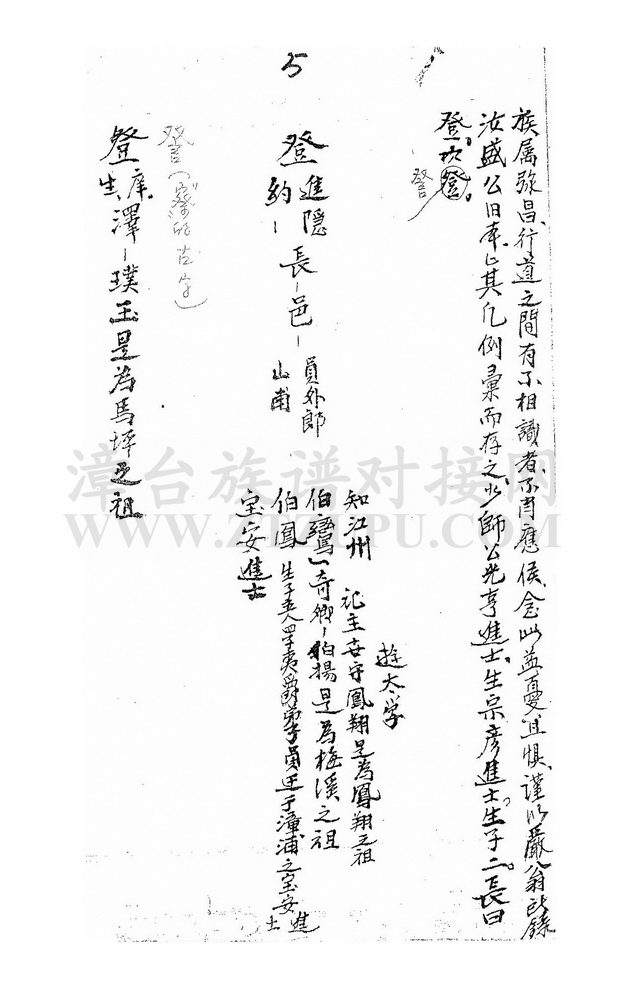 5
族属弥昌,行道之間有不相識者,不肖應侯,念此益憂且惧,謹以嚴翁所錄
汝盛公旧本,上其凡例彙而存之,少師公光亨進士,生宗彦進士,生子二,長曰
登,次登。
詧
登
進隠
約-
長-邑-
員外郎
山甫
知江州
記主安守鳳翔是為鳳翔之祖
遊太学
伯鸞
奇卿-伯揚是為梅溪之祖
伯鳳
弟子員迁于漳浦之宝安
進士
宝安進士
詧(察的古字)
登
庠生
澤-璞玉是為馬坪之祖
漳台族谱对接网
WWW.ZTZUPU.COM